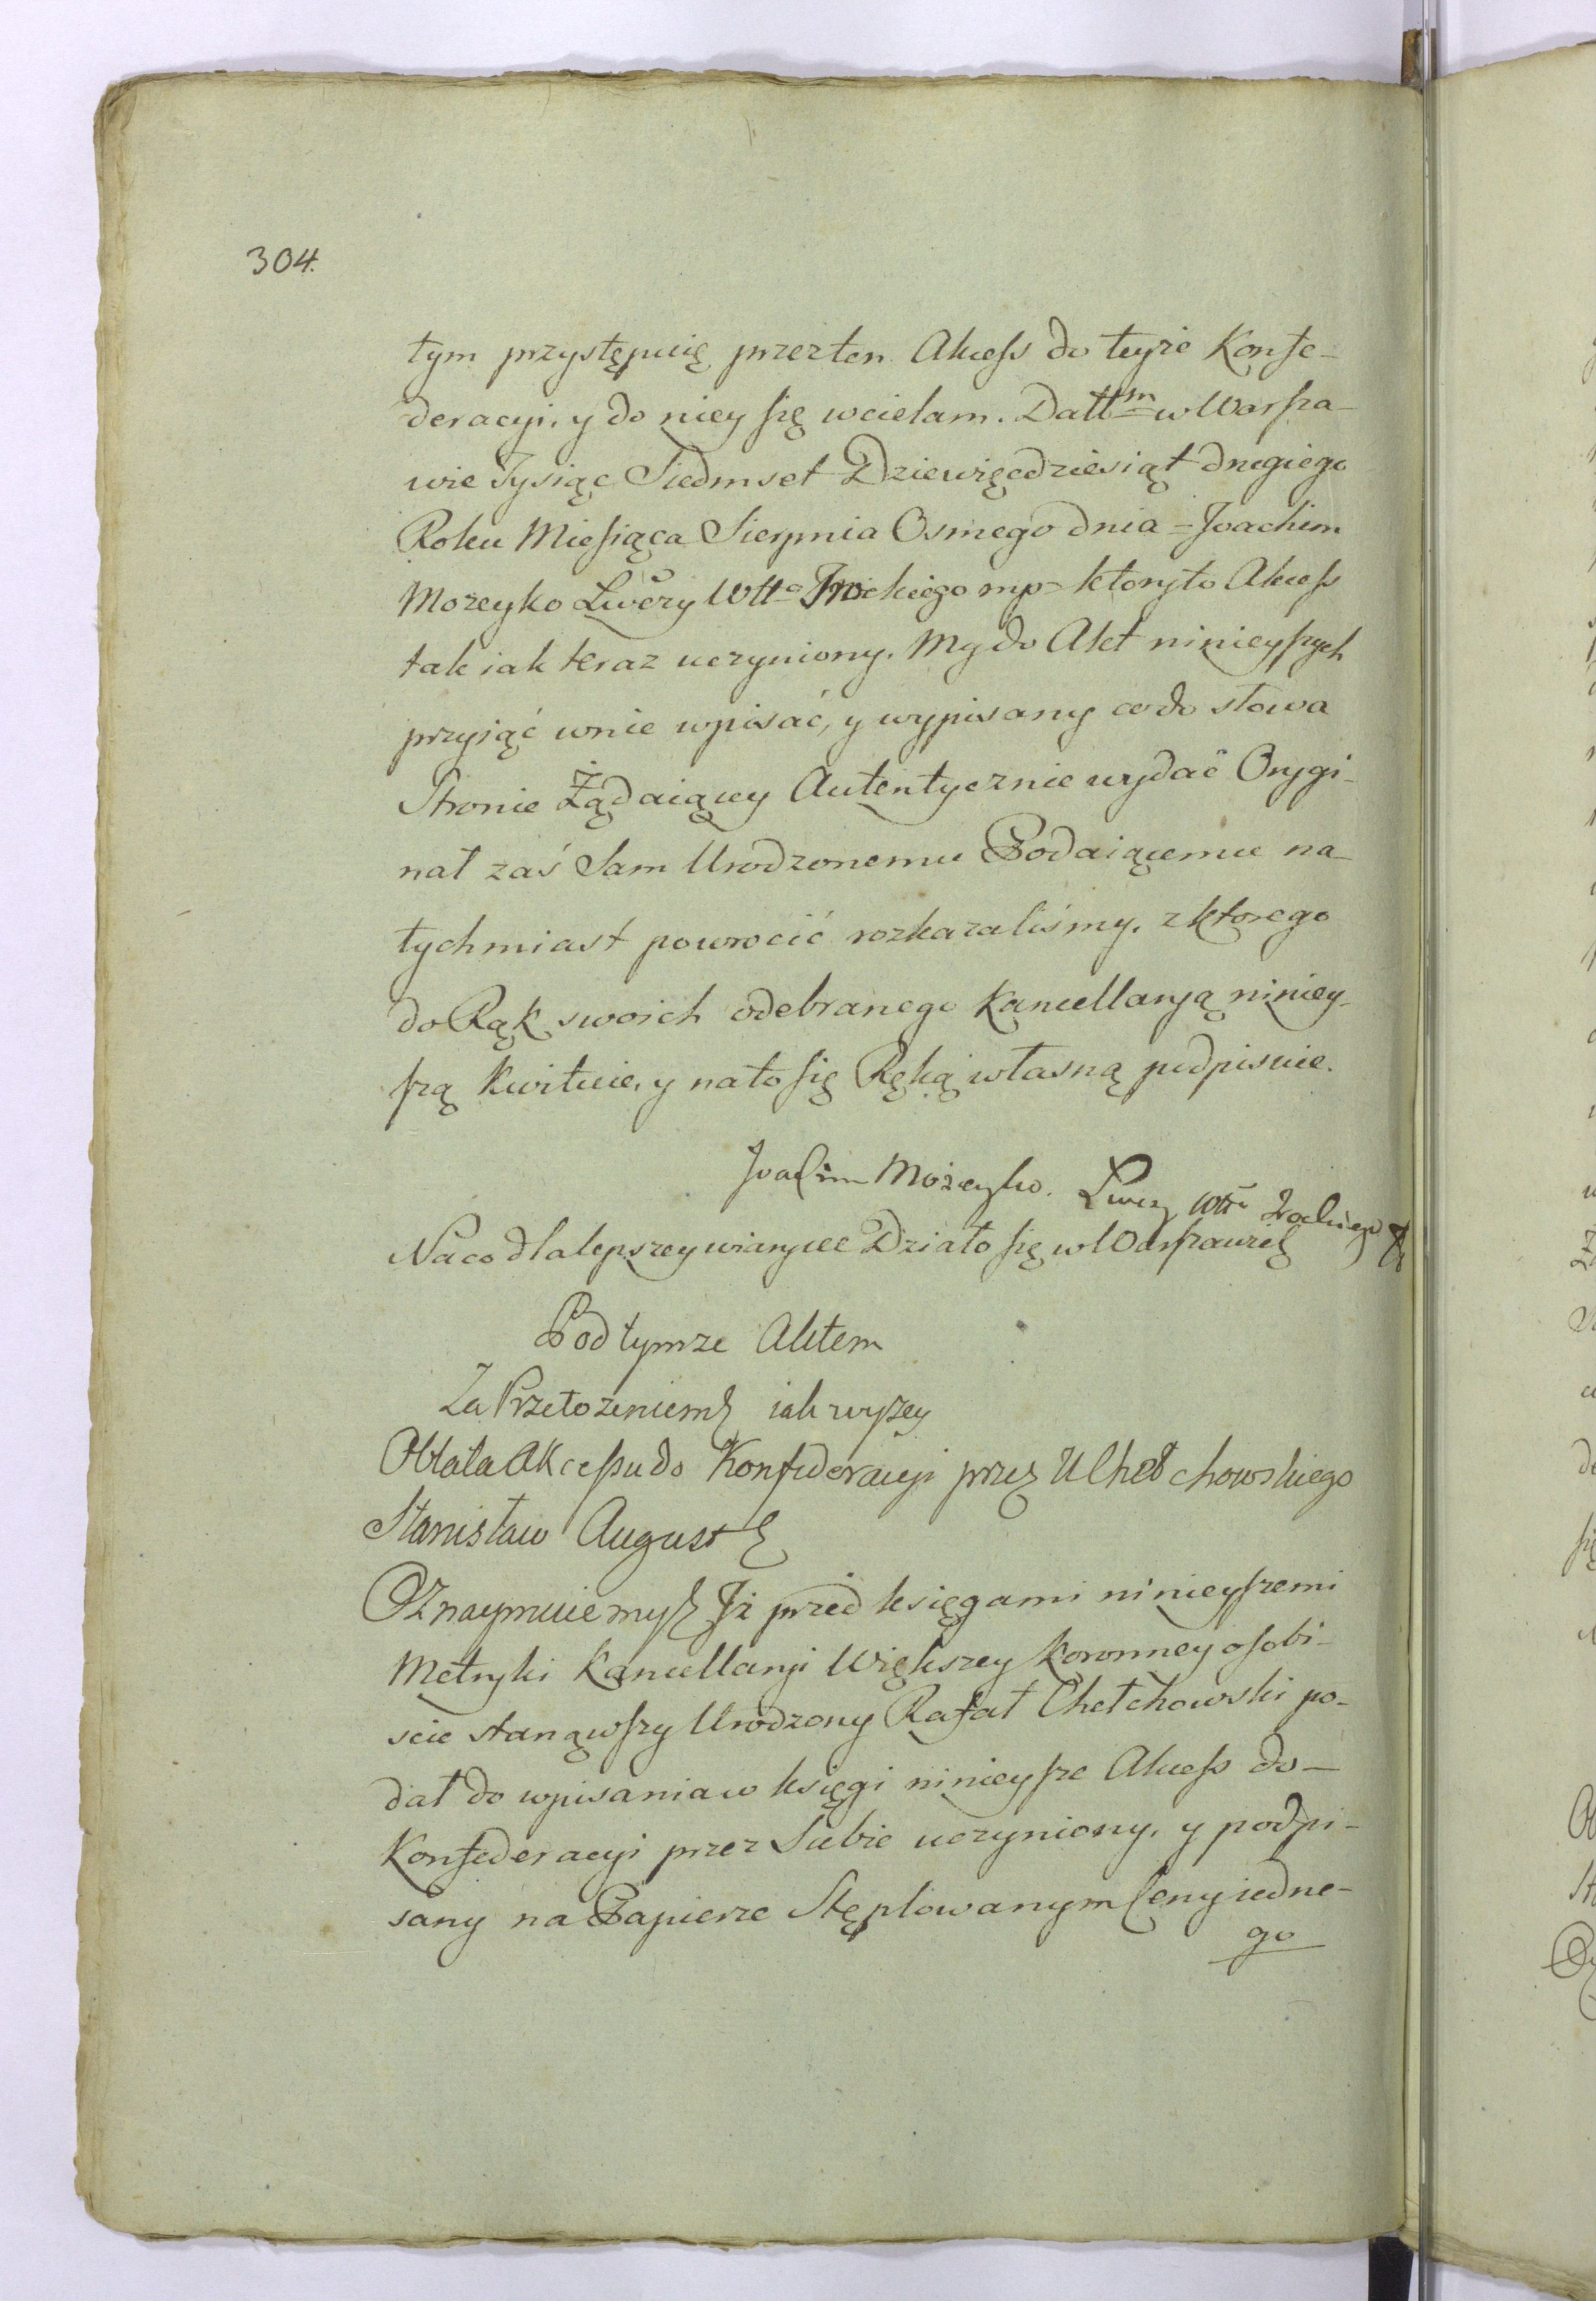 304.
tym przystępuię przez ten Akcess do teyże Konfe-
deracyi, y do niey się wcielam. Datt<sup>m</sup> w Warsza-
wie Tysiąc Siedmset Dziewięcdziesiąt drugiego
Roku Miesiąca Sierpnia Osmego dnia = Joachim
Mozeyko Łwczy Wttа Trockiego mp = ktoryto Akcess
tak iak teraz uczyniony. My do Akt ninieyszych
przyiąć wnie wpisać, y wypisany co do słowa
Stronie Żądaiącey Autentycznie wydać Orygi-
nał zaś Sam Urodzonemu Podaiącemu na-
tychmiast powrocić rozkazaliśmy, z ktorego
do Rąk swoich odebranego Kancellaryą niniey-
szą Kwituie, y na to się Ręką własną podpisuie.
Joachim Możeyko. Łwczy Wttа Trockiego
Na co dla lepszey wiary ett Działo się w Warszawie
Pod tymze Aktem
Za Przełozeniem iak wyzey
Oblata Akcessu do Konfederacyi przez U Chełchowskiego
Stanisław August
Oznaymuiemy Iż przed księgami ninieyszemi
Metryki Kancellaryi Większey Koronney osobi-
scie stanąwszy Urodzony Rafał Chełchowski po-
dał do wpisania w księgi ninieysze Akcess do-
Konfederacyi przez Siebie uczyniony, y podpi-
sany na Papierze Stęplowanym Ceny iedne-
go